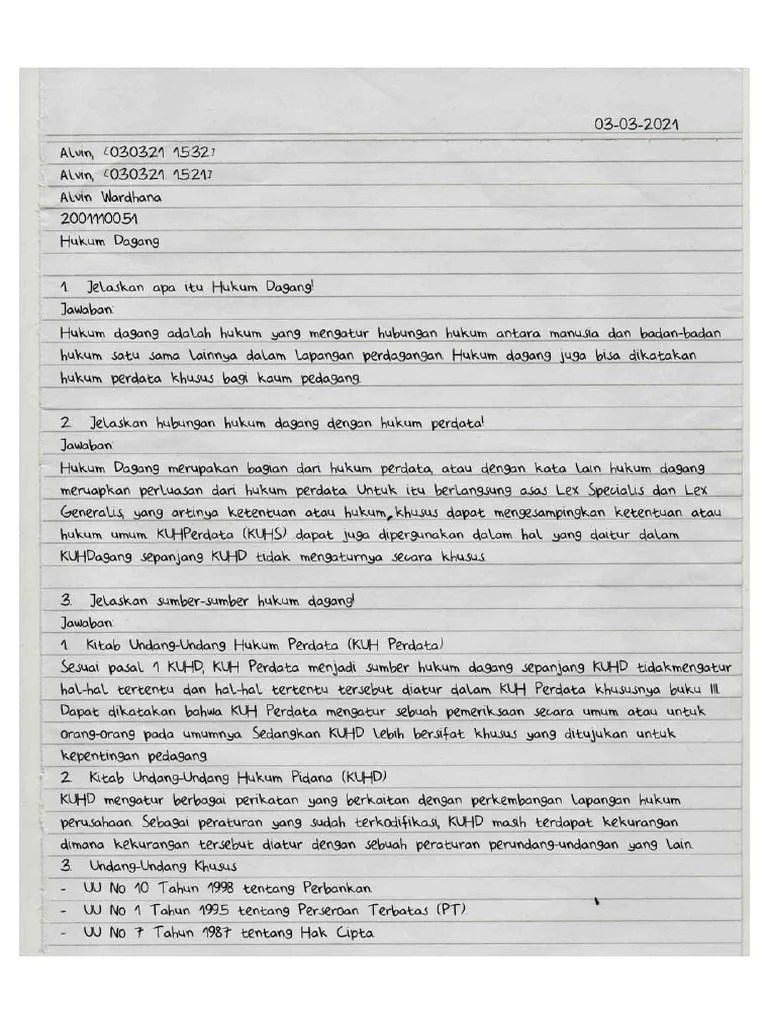 03-03-2021
Alvin, [030321 1532]
Alvin, [030321 1521]
Alvin Wardhana
2001110051
Hukum Dagang
1. Jelaskan apa itu Hukum Dagang!
Jawaban:
Hukum dagang adalah hukum yang mengatur hubungan hukum antara manusia dan badan-badan
hukum satu sama lainnya dalam lapangan perdagangan Hukum dagang juga bisa dikatakan
hukum perdata khusus bagi kaum pedagang.
2. Jelaskan hubungan hukum dagang dengan hukum perdata!
Jawaban:
Hukum Dagang merupakan bagian dari hukum perdata, atau dengan kata lain hukum dagang
meruapkan perluasan dari hukum perdata Untuk itu berlangsung asas Lex Specialis dan Lex
Generalis, yang artinya ketentuan atau hukum khusus dapat mengesampingkan ketentuan atau
hukum umum KUHPerdata (KUHS) dapat juga dipergunakan dalam hal yang daitur dalam
KUHDagang sepanjang KUHD tidak mengaturnya secara khusus.
3. Jelaskan sumber-sumber hukum dagang!
Jawaban:
1. Kitab Undang-Undang Hukum Perdata (KUH Perdata)
Sesuai pasal 1 KUHD, KUH Perdata menjadi sumber hukum dagang sepanjang KUHD tidakmengatur
hal-hal tertentu dan hal-hal tertentu tersebut diatur dalam KUH Perdata khususnya buku III.
Dapat dikatakan bahwa KUH Perdata mengatur sebuah pemeriksaan secara umum atau untuk
orang-orang pada umumnya Sedangkan KUHD lebih bersifat khusus yang ditujukan untuk
kepentingan pedagang
2. Kitab Undang-Undang Hukum Pidana (KUHD)
KUHD mengatur berbagai perikatan yang berkaitan dengan perkembangan lapangan hukum
perusahaan. Sebagai peraturan yang sudah terkodifikasi, KUHD masih terdapat kekurangan
dimana kekurangan tersebut diatur dengan sebuah peraturan perundang-undangan yang lain.
3. Undang-Undang Khusus
- UU No 10 Tahun 1998 tentang Perbankan
- UU No 1 Tahun 1995 tentang Perseroan Terbatas (PT)
- UU No 7 Tahun 1987 tentang Hak Cipta